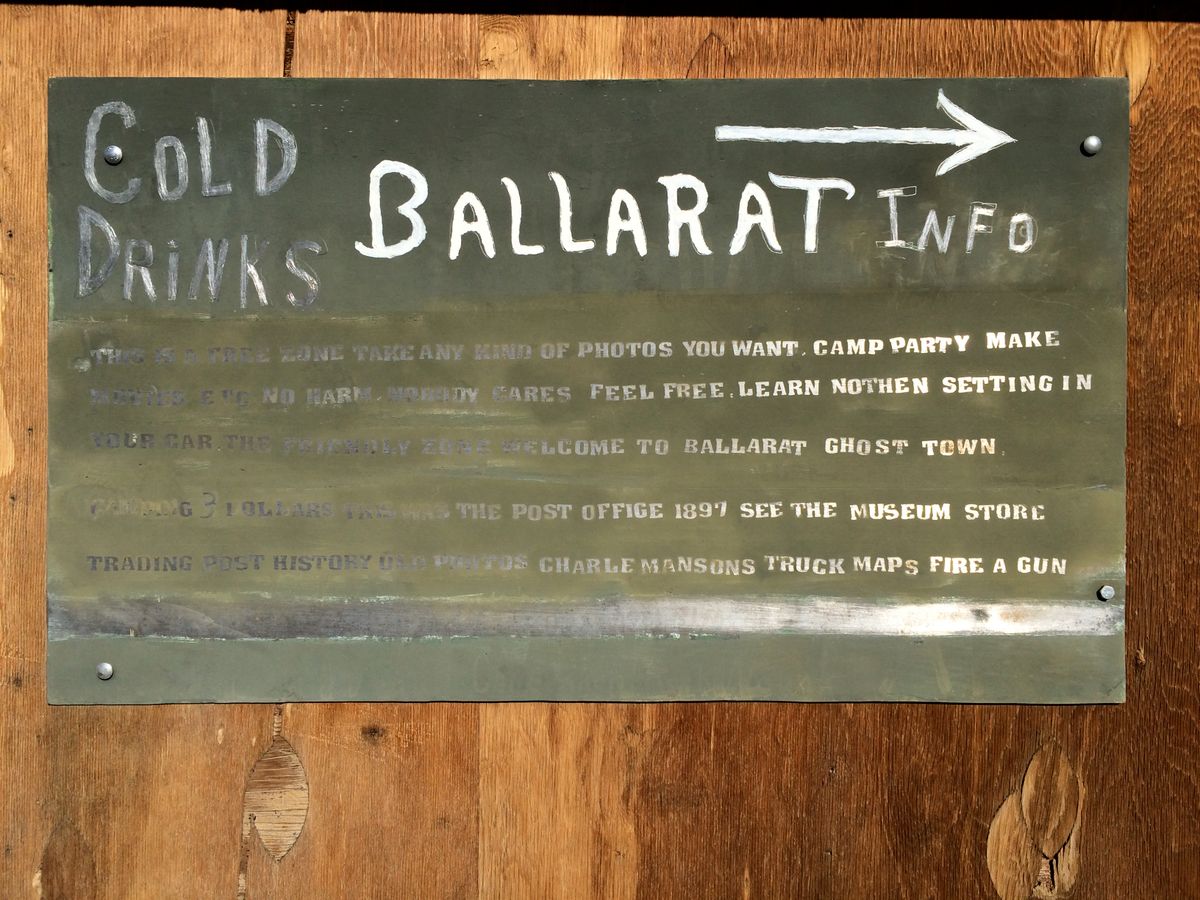 COLD
DRINKS
BALLARAT INFO
THIS IS A FREE ZONE TAKE ANY KIND OF PHOTOS YOU WANT. CAMP PARTY MAKE
MOVIES. ETC NO HARM. NOBODY CARES FEEL FREE. LEARN NOTHEN SETTING IN
YOUR CAR. THE FRIENDLY ZONE WELCOME TO BALLARAT GHOST TOWN
CAMPING 3 DOLLARS THIS WAS THE POST OFFICE 1897 SEE THE MUSEUM STORE
TRADING POST HISTORY OLD PHOTOS CHARLE MANSONS TRUCK MAPS FIRE A GUN